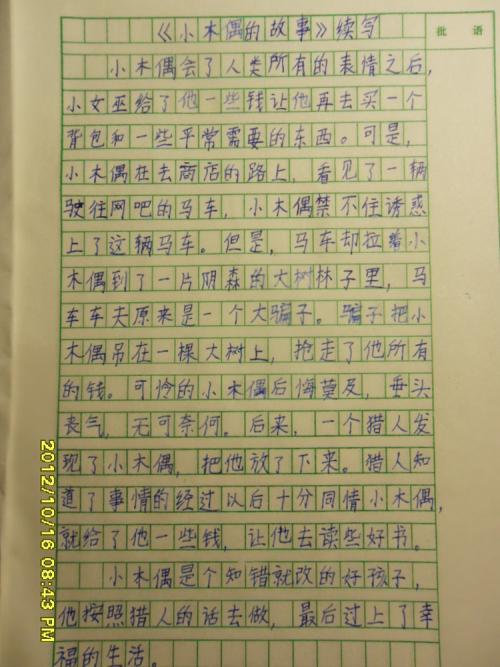 《小木偶的故事》续写
批 语
小木偶会了人类所有的表情之后，
小女巫给了他一些钱让他再去买一个
背包和一些平常需要的东西。可是，
小木偶在去商店的路上，看见了一辆
驶往网吧的马车，小木偶禁不住诱惑
上了这辆马车。但是，马车却拉着小
木偶到了一片阴森的大树林子里，马
车车夫原来是一个大骗子。骗子把小
木偶吊在一棵大树上，抢走了他所有
的钱。可怜的小木偶后悔莫及，垂头
丧气，无可奈何。后来，一个猎人发
现了小木偶，把他放了下来。猎人知
道了事情的经过以后十分同情小木偶，
就给了他一些钱，让他去读些好书。
小木偶是个知错就改的好孩子，
他按照猎人的话去做，最后过上了幸
福的生活。
2012/10/16 08:43 PM